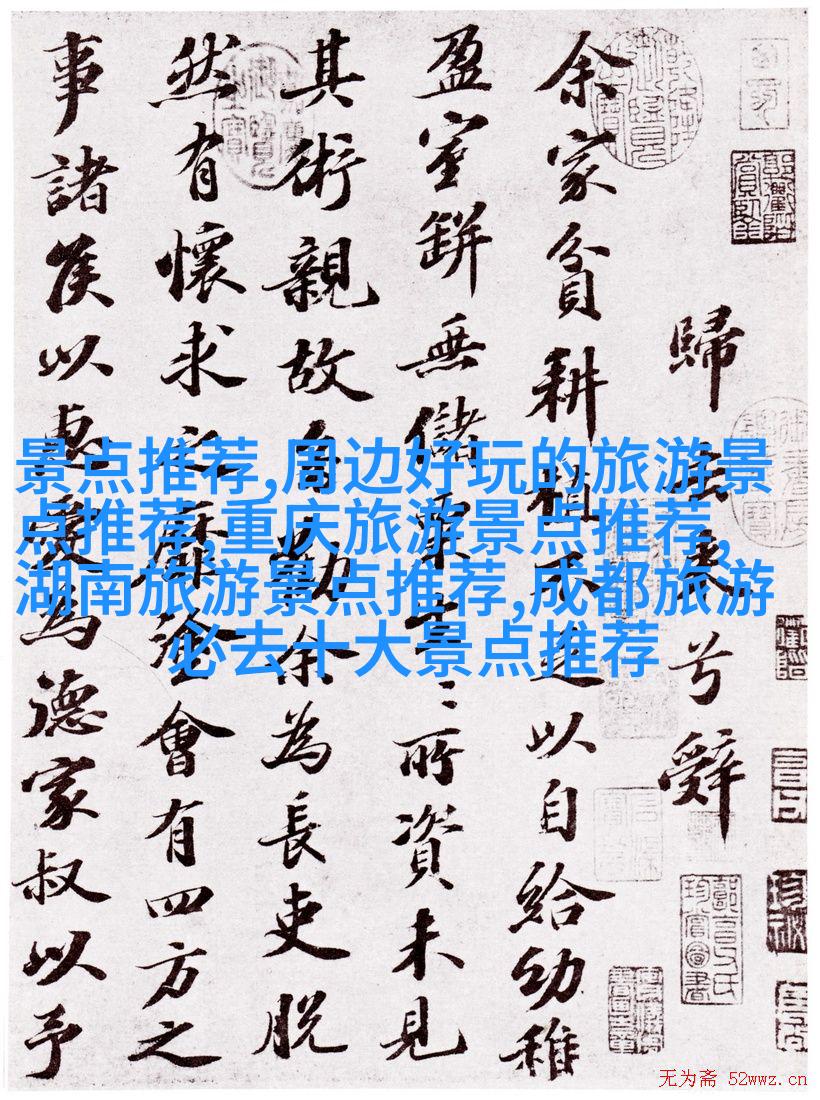 歸去來兮辭
余家貧耕植不足以自給幼稚
盈室缾無儲粟生〻所資未見
其術親故多勸余為長吏脫
然有懷求之靡途會有四方之
事諸侯以惠愛為德家叔以予
景点推荐,周边好玩的旅游景
点推荐,重庆旅游景点推荐,
湖南旅游景点推荐,成都旅游
必去十大景点推荐
无为斋 52wwz.cn